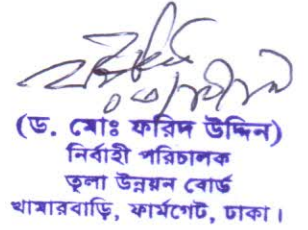 (ড. মোঃ ফরিদ উদ্দিন)
নির্বাহী পরিচালক
তুলা উন্নয়ন বোর্ড
খামারবাড়ি, ফার্মগেট, ঢাকা।